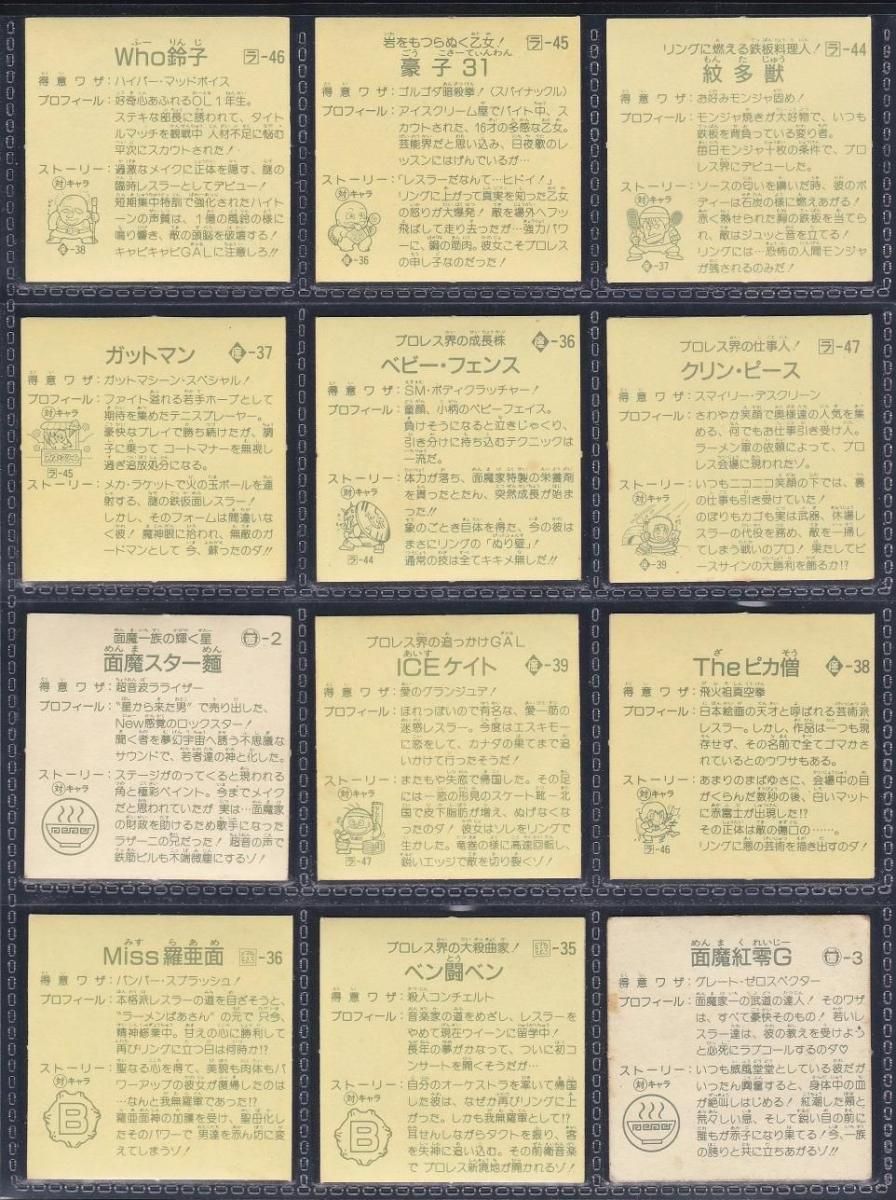 Who鈴子 ラ-46
得意ワザ：ハイパー・マッドボイス
プロフィール：好奇心あふれるOL1年生。
ステキな部長に誘われて、タイト
ルマッチを観戦中 人材不足に悩む
平次にスカウトされた！
ストーリー：過激なメイクに正体を隠す、謎の
対キャラ 臨時レスラーとしてデビュー！
短期集中特訓で強化されたハイト
ーンの声質は、1億の風鈴の様に
鳴り響き、敵の頭脳を破壊する！
-38 キャピキャピGALに注意しろ!!
岩をもつらぬく乙女！ ラ-45
豪子31
得意ワザ：ゴルゴダ暗殺拳！（スパイナックル）
プロフィール：アイスクリーム屋でバイト中、ス
カウトされた、16才の多感な乙女。
芸能界だと思い込み、日夜歌のレ
ッスンにはげんでいるが…
ストーリー：「レスラーだなんて…ヒドイ！」
対キャラ リングに上がって真実を知った乙女
の怒りが大爆発！ 敵を場外へフッ
飛ばして走り去ったが…強力パワ
ーに、鋼の筋肉。彼女こそプロレス
-36 の申し子なのだった！
リングに燃える鉄板料理人！ ラ-44
紋多獣
得意ワザ：お好みモンジャ固め！
プロフィール：モンジャ焼きが大好物で、いつも
鉄板を背負っている変り者。
毎日モンジャ十枚の条件で、プロレ
ス界にデビューした。
ストーリー：ソースの匂いを嗅いだ時、彼のボ
対キャラ ディーは石炭の様に燃えあがる！
赤く熱せられた胸の鉄板を当てら
れ、敵はジュッと音を立てる！
リングには…恐怖の人間モンジャ
-37 が残されるのみだ！
ガットマン -37
得意ワザ：ガットマシーン・スペシャル！
プロフィール：ファイト溢れる若手ホープとして
対キャラ 期待を集めたテニスプレーヤー。
豪快なプレイで勝ち続けたが、調
子に乗って コートマナーを無視し
ラ-45 過ぎ追放処分になる。
ストーリー：メカ・ラケットで火の玉ボールを連
射する、謎の鉄仮面レスラー！
しかし、そのフォームは間違いな
く彼！ 魔神眼に拾われ、無敵のガ
ードマンとして 今、蘇ったのダ!!
プロレス界の成長株 -36
ベビー・フェンス
得意ワザ：SM・ボディクラッチャー！
プロフィール：童顔、小柄のベビーフェイス。
負けそうになると泣きじゃくり、
引き分けに持ち込むテクニックは
一流だ。
ストーリー：体力が落ち、面魔家特製の栄養剤
対キャラ を貰ったとたん、突然成長が始ま
った!!
象のごとき巨体を得た、今の彼は
まさにリングの「ぬり壁」！
ラ-44 通常の技は全てキキメ無しだ!!
プロレス界の仕事人！ ラ-47
クリン・ピース
得意ワザ：スマイリー・デスクリーン
プロフィール：さわやか笑顔で奥様達の人気を集
める、何でもお仕事引き受け人。
ラーメン軍の依頼によって、プロレ
ス会場に現われたゾ。
ストーリー：いつもニコニコ笑顔の下では、裏
対キャラ の仕事も引き受けていた！
のぼりもカゴも実は武器、休場レ
スラーの代役を務め、敵を一掃し
てしまう戦いのプロ！ 果たしてピ
-39 ースサインの大勝利を飾るか!?
面魔一族の輝く星 -2
面魔スター麺
得意ワザ：超音波ラライザー
プロフィール：“星から来た男”で売り出した、
New感覚のロックスター！
聞く者を夢幻宇宙へ誘う不思議な
サウンドで、若者達の神と化した。
ストーリー：ステージがのってくると現われる
対キャラ 角と極彩ペイント。今までメイク
だと思われていたが 実は…面魔家
の財政を助けるため歌手になった
ラザーニの兄だった！ 超音の声で
鉄筋ビルも木端微塵にするゾ！
プロレス界の追っかけGAL -39
ICEケイト
得意ワザ：愛のグランジュデ！
プロフィール：ほれっぽいので有名な、愛一筋の
迷惑レスラー。今度はエスキモー
に恋をして、カナダの果てまで追
いかけて行ったそうだ！
ストーリー：またもや失恋で帰国した。その足
対キャラ には一恋の形見のスケート靴一北
国で皮下脂肪が増え、ぬげなくな
ったのダ！ 彼女はソレをリングで
生かした。竜巻の様に高速回転し、
ラ-47 鋭いエッジで敵を切り裂くゾ！
Theピカ僧 -38
得意ワザ：飛火祖真空拳
プロフィール：日本絵画の天才と呼ばれる芸術派
レスラー。しかし、作品は一つも現
存せず、その名前で全てゴマかさ
れているとのウワサもある。
ストーリー：あまりのまばゆさに、会場中の目
対キャラ がくらんだ数秒の後、白いマット
に赤富士が出現した!?
その正体は敵の傷口の……。
ラ-46 リングに悪の芸術を描き出すのダ！
Miss羅亜面 -36
得意ワザ：バンパー・スプラッシュ！
プロフィール：本格派レスラーの道を目ざそうと、
“ラーメンばあさん”の元で 只今、
精神修業中。甘えの心に勝利して
再びリングに立つ日は何時か!?
ストーリー：聖なる心を得て、美貌も肉体もパ
対キャラ ワーアップの彼女が復帰したのは
…なんと我無羅軍であった!?
B 羅亜面神の加護を受け、聖母化し
たそのパワーで 男達を赤ん坊に変
えてしまうゾ！
プロレス界の大殺曲家！ -35
ベン闘ベン
得意ワザ：殺人コンチェルト
プロフィール：音楽家の道をめざし、レスラーを
やめて現在ウイーンに留学中！
長年の夢がかなって、ついに初コ
ンサートを開くそうだが…
ストーリー：自分のオーケストラを率いて帰国
対キャラ した彼は、なぜか再びリングに上
がった。しかも我無羅軍として!?
B 耳せんしながらダクトを振り、客を
失神に追い込む。その前衛音楽
で プロレス新境地が開かれるゾ！
面魔紅零G -3
得意ワザ：グレート・ゼロスペクター
プロフィール：面魔家一の武道の達人！ そのワザ
は、すべて豪快そのもの！ 若いレ
スラー達は、彼の教えを受けよう
と必死にラブコールするのダ♡
ストーリー：いつも威風堂堂としている彼だが
対キャラ いったん興奮すると、身体中の血
が絶叫しはじめる！ 紅潮した頬と
荒々しい息、そして鋭い目の前に
誰もが赤子になり果てる！今、一族
の誇りと共に立ちあがるゾ!!